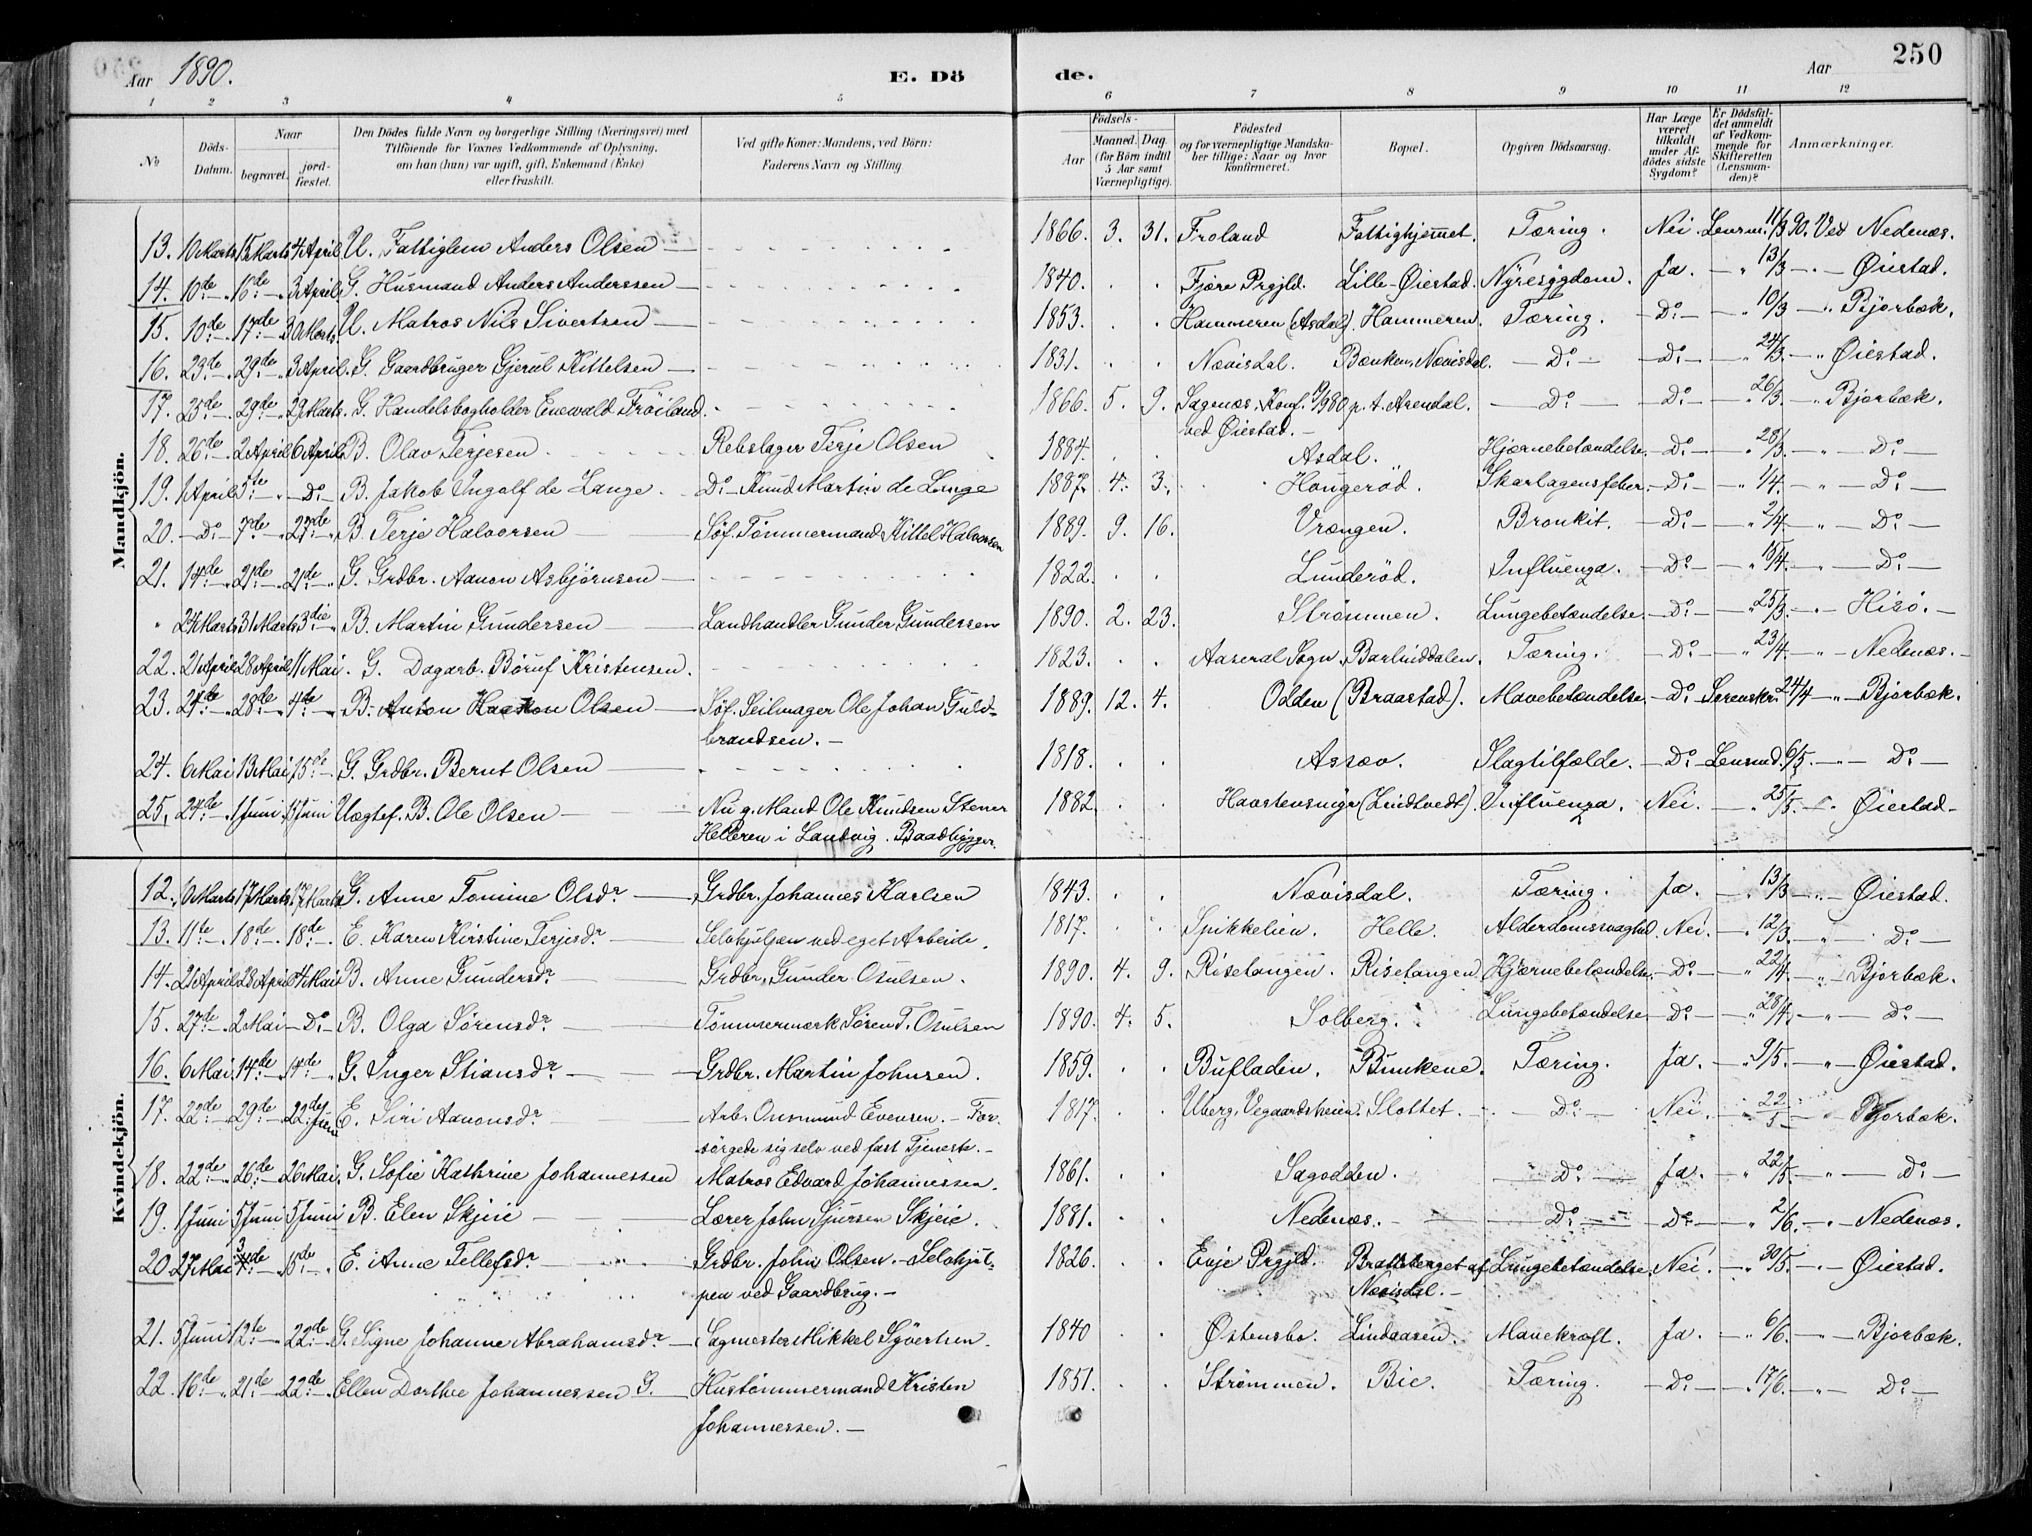 250
Aar 1890. E. Dö de. Aar
1 2 3 4 5 6 7 8 9 10 11 12
No
Döds-Datum.
Naar
begravet. jord-fæstet.
Den Dödes fulde Navn og borgerlige Stilling (Næringsvei) med
Tilföiende for Voxnes Vedkommende af Oplysning,
om han (hun) var ugift, gift, Enkemand (Enke)
eller fraskilt.
Ved gifte Koner: Mandens, ved Börn:
Faderens Navn og Stilling
Födsels-
Aar Maaned. Dag.
(for Börn indtil
5 Aar samt
Værnepligtige).
Födested
og for værnepligtige Mandska-
ber tillige: Naar og hvor
konfirmeret.
Bopæl.
Opgiven Dödsaarsag.
Har Læge
været
tilkaldt
under Af-
dödes sidste
Sygdom?
Er Dödsfal-
det anmeldt
af Vedkom-
mende for
Skifteretten
(Lensman-
den)?
Anmærkninger.
Mandkjön.
13. 10 Marts 15 Marts 4 April U. Fattiglem Anders Olsen — 1866. 3. 31. Froland Fattighjemmet. Tæring. Nei. Lensm. 11/3 90. Ved Nedenæs.
14. 10de 16de 3 April G. Husmand Anders Anderssen — 1840. Fjære Prgjld. Lille-Øiestad. Nyresygdom. Ja. 13/3 Øiestad.
15. 10de 17de 30 Marts U. Matros Nils Sivertsen — 1853. Hammeren (Asdal). Hammeren. Tæring. Do 10/3 Bjorbæk.
16. 23de 29de 3 April. G. Gaardbruger Gjerul Kittelsen — 1831. Nævisdal. Bænken, Nævisdal. Do Do 24/3 Øiestad.
17. 25de 29de 29 Marts. G. Handelsbogholder Enewald Frøiland. 1866. 5. 9. Sagenæs. Konf. p. t. Arendal. Do Do 26/3 Bjorbæk.
ved Øiestad.
18. 26de 2 April 6 April B. Olav Terjesen Rebslager Terje Olsen 1884. Asdal. Hjærnebetændelse. Do 28/3 Do
19. 1 April 5te Do B. Jakob Ingolf de Lange. Do Knud Martin de Lange 1887. 4. 3. Hougerød. Skarlagensfeber. Do 1/4. Do
20. Do 7de 27de B. Terje Halvorsen Søf. Tømmermand Kittel Halvorsen 1889. 9. 16. Vrængen. Bronkit. Do 2/4. Do
21. 14de 21de 21de G. Grdbr. Aanon Asbjørnsen 1822. Lunderød. Influenza. Do 15/4. Do
24 Marts 31 Marts 3die B. Martin Gundersen Landhandler Gunder Gundersen 1890. 2. 23. Strømmen. Lungebetændelse. Do 25/3 Hisø.
22. 21 April 28 April 11 Mai. G. Dagarb. Børuf Kristensen. 1823. Aaseral Sogn. Barlinddalen. Tæring. Do 23/4. Nedenæs.
23. 21de 28de 4de B. Anton Haakon Olsen Søf. Seilmager Ole Johan Guld- 1889. 12. 4. Odden (Braastad). Mavebetændelse. Do 24/4 Bjorbæk.
brandsen.
24. 6 Mai 13 Mai 15de G. Grdbr. Bernt Olsen 1818. Assæv. Slagtilfælde. Do Lensmd. 6/5. Do
25. 24de 1 Juni. Juni Uægtef. B. Ole Olsen Nu g. Mand Ole Knudsen Stener 1882 (Lindtvedt). Influenza. Nei. 25/5. Øiestad
Helleren i Landvig. Baadbygger.
Kvindekjön.
12. 10 Marts 17 Marts. 17 Marts G. Anne Tomine Olsdr Grdbr. Johannes Karlsen 1843. Nævisdal. Tæring. Ja. 13/3 Øiestad.
13. 11te 18de 18de E. Karen Kirstine Terjesdr Selvhjulpen ved eget Arbeide. 1817. Spikkelien. Helle. Alderdomssvaghed. Nei. 12/3. Do
14. 21 April 28 April 4 Mai B. Anne Gundersdr Grdbr. Gunder Osulsen. 1890. 4. 9. Risetangen. Risetangen Hjærnebetændelse. Do 22/4 Bjorbæk.
15. 27de 2 Mai Do B. Olga Sørensdr Tømmermærk Søren T. Osulsen 1890. 4. 5. Solberg. Lungebetændelse. Do 28/4. Do
16. 6 Mai 14de 14de G. Inger Stiansdr Grdbr. Martin Johnsen. 1859. Bufladen. Bunkene. Tæring. Ja. 9/5. Øiestad.
17. 22de 29de 22de Juni E. Siri Aanonsdr Arb. Onsmund Evensen. For- 1817. Uberg, Vegaardsheien. Slottet. Do Nei. 22/5 Bjorbæk.
sørgede sig selv ved fast Tjeneste.
18. 22de 26de 26 Mai. G. Sofie Kathrine Johannessen Matros Edvard Johannessen. 1861. Sagodden. Do Ja. 22/5. Do
19. 1 Juni 5 Juni 5 Juni B. Elen Skjeie Lærer John Sjursen Skjeie. 1881. Nedenæs. Do Do 2/6. Nedenæs.
20. 27 Mai 3de 15de E. Anne Tellefsdr Grdbr. John Olsen. Selvhjul- 1826. Evje Prgjld. Bratteberget af Lungebetændelse. Nei. 30/5. Øiestad.
pen ved Gaardbrug. Nævisdal.
21. 5 Juni 12te 22de G. Signe Johanne Abrahamsdr Sagmester Mikkel Syvertsen. 1840 Østensbo. Lindaasen. Mavekræft. Ja. 6/6. Bjorbæk.
22. 16de 21de 22de Ellen Dorthe Johannessen G. Hustømmermand Kristen 1851. Strømmen. Bie. Tæring. Do 17/6. Do
Johannessen.